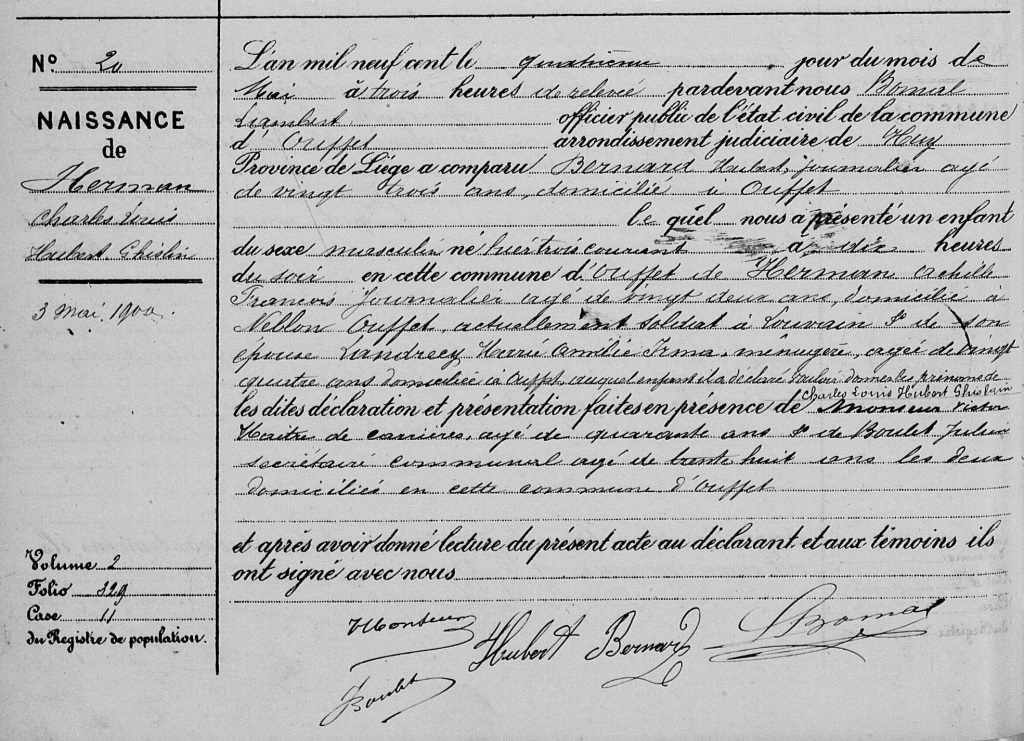 N° 20
NAISSANCE
de
Herman
Charles Louis
Hubert Ghislin
3 Mai 1900.
Volume 2
Folio 329
Case 11
du Registre de population.
L'an mil neuf cent le quatrième jour du mois de
Mai à trois heures de relevée pardevant nous Bomal
Lambert officier public de l'état civil de la commune
d'Ouffet arrondissement judiciaire de Huy
Province de Liége a comparu Bernard Hubert, journalier agé
de vingt trois ans, domicilié à Ouffet
le quel nous a présenté un enfant
du sexe masculin né hier trois courant à dix heures
du soir en cette commune d'Ouffet de Herman Achille
François Journalier agé de vingt deux ans, domicilié à
Néblon Ouffet, actuellement soldat à Louvain & de son
épouse Landrecy Marie Amélie Irma, ménagère, agée de vingt
quatre ans domiciliée à Ouffet, auquel enfant il a déclaré vouloir donner les prénoms de
Charles Louis Hubert Ghislain
les dites déclaration et présentation faites en présence de Monseur Victor
Maitre de carrières, agé de quarante ans & de Boulet Jules
secrétaire communal agé de trente huit ans les deux
domiciliés en cette commune d'Ouffet
et après avoir donné lecture du présent acte au déclarant et aux témoins ils
ont signé avec nous
VMonseur
Hubert Bernard
LBomal
JBoulet